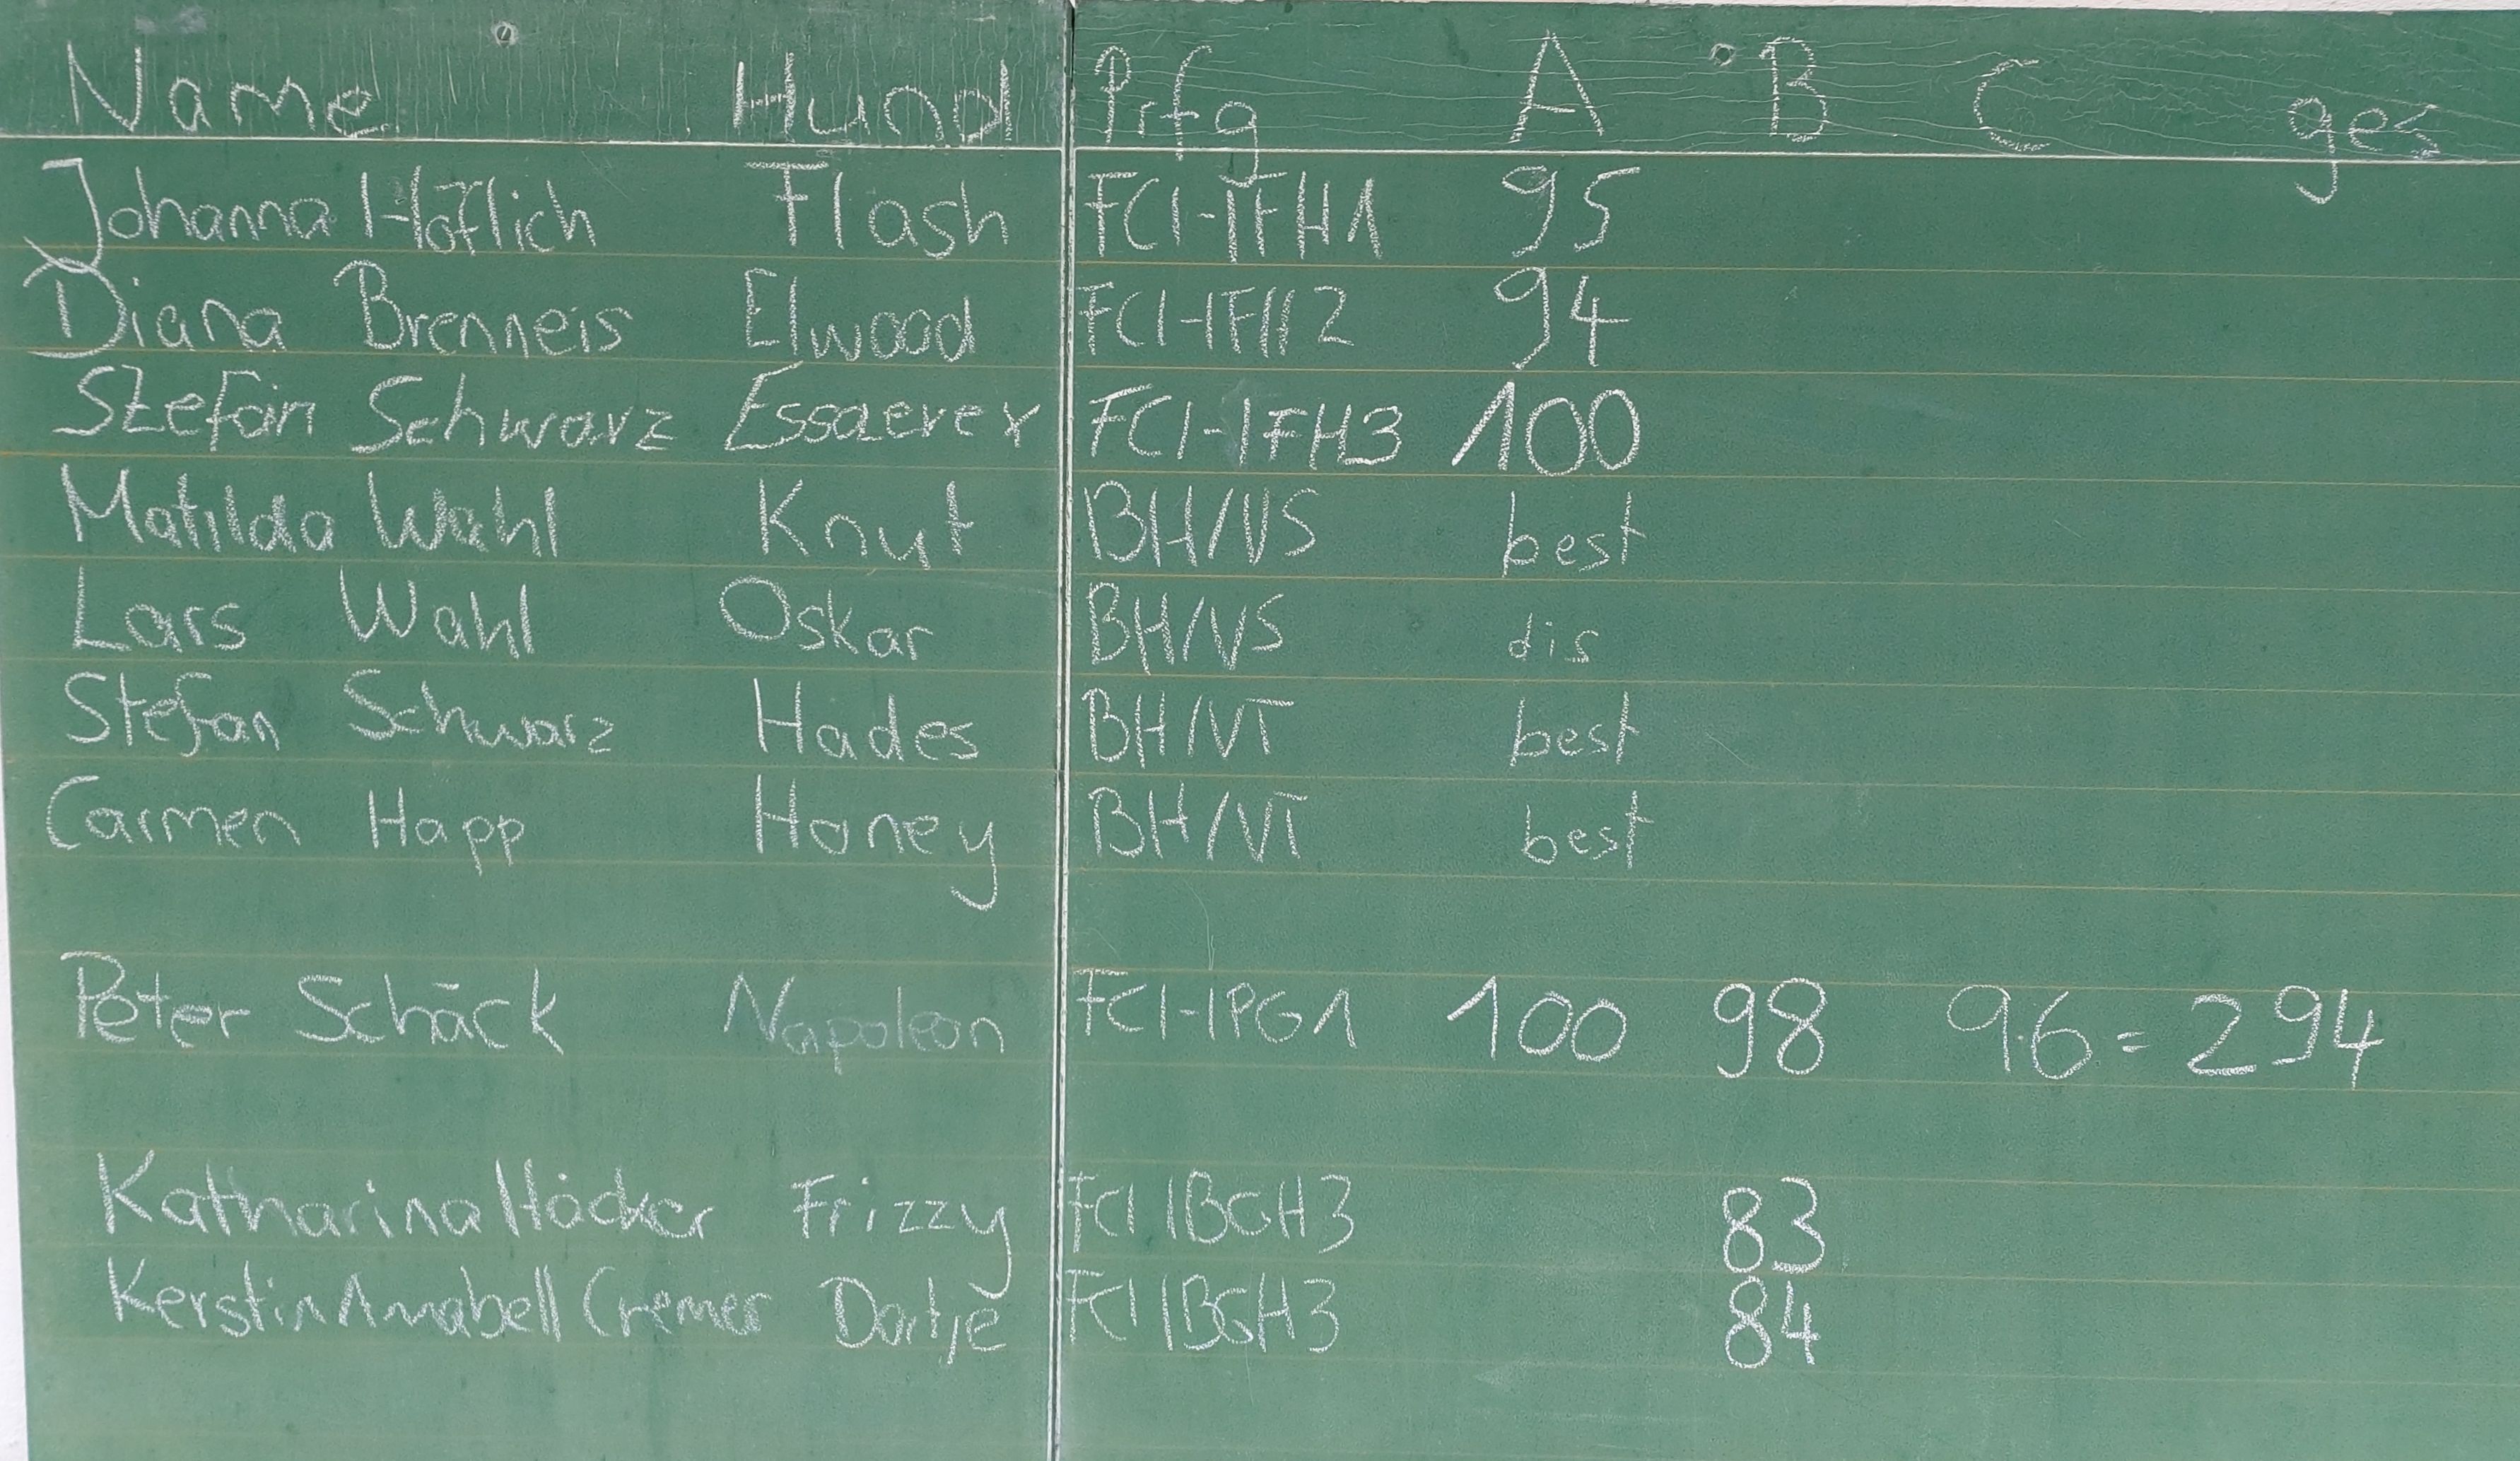 Name Hund Prfg A B C ges
Johanna Höflich Flash FCI-IFH1 95
Diana Brenneis Elwood FCI-IFH2 94
Stefan Schwarz FCI-IFH3 100
Matilda Wahl Knut BH/VS best
Lars Wahl Oskar BH/VS dis
Stefan Schwarz Hades BH/VT best
Carmen Happ Honey BH/VT best
Peter Schäck Napoleon FCI-IPG1 100 98 96 = 294
Katharina Häcker Frizzy FCI IBGH3 83
Kerstin Annabell Cremer Dortje FCI IBGH3 84